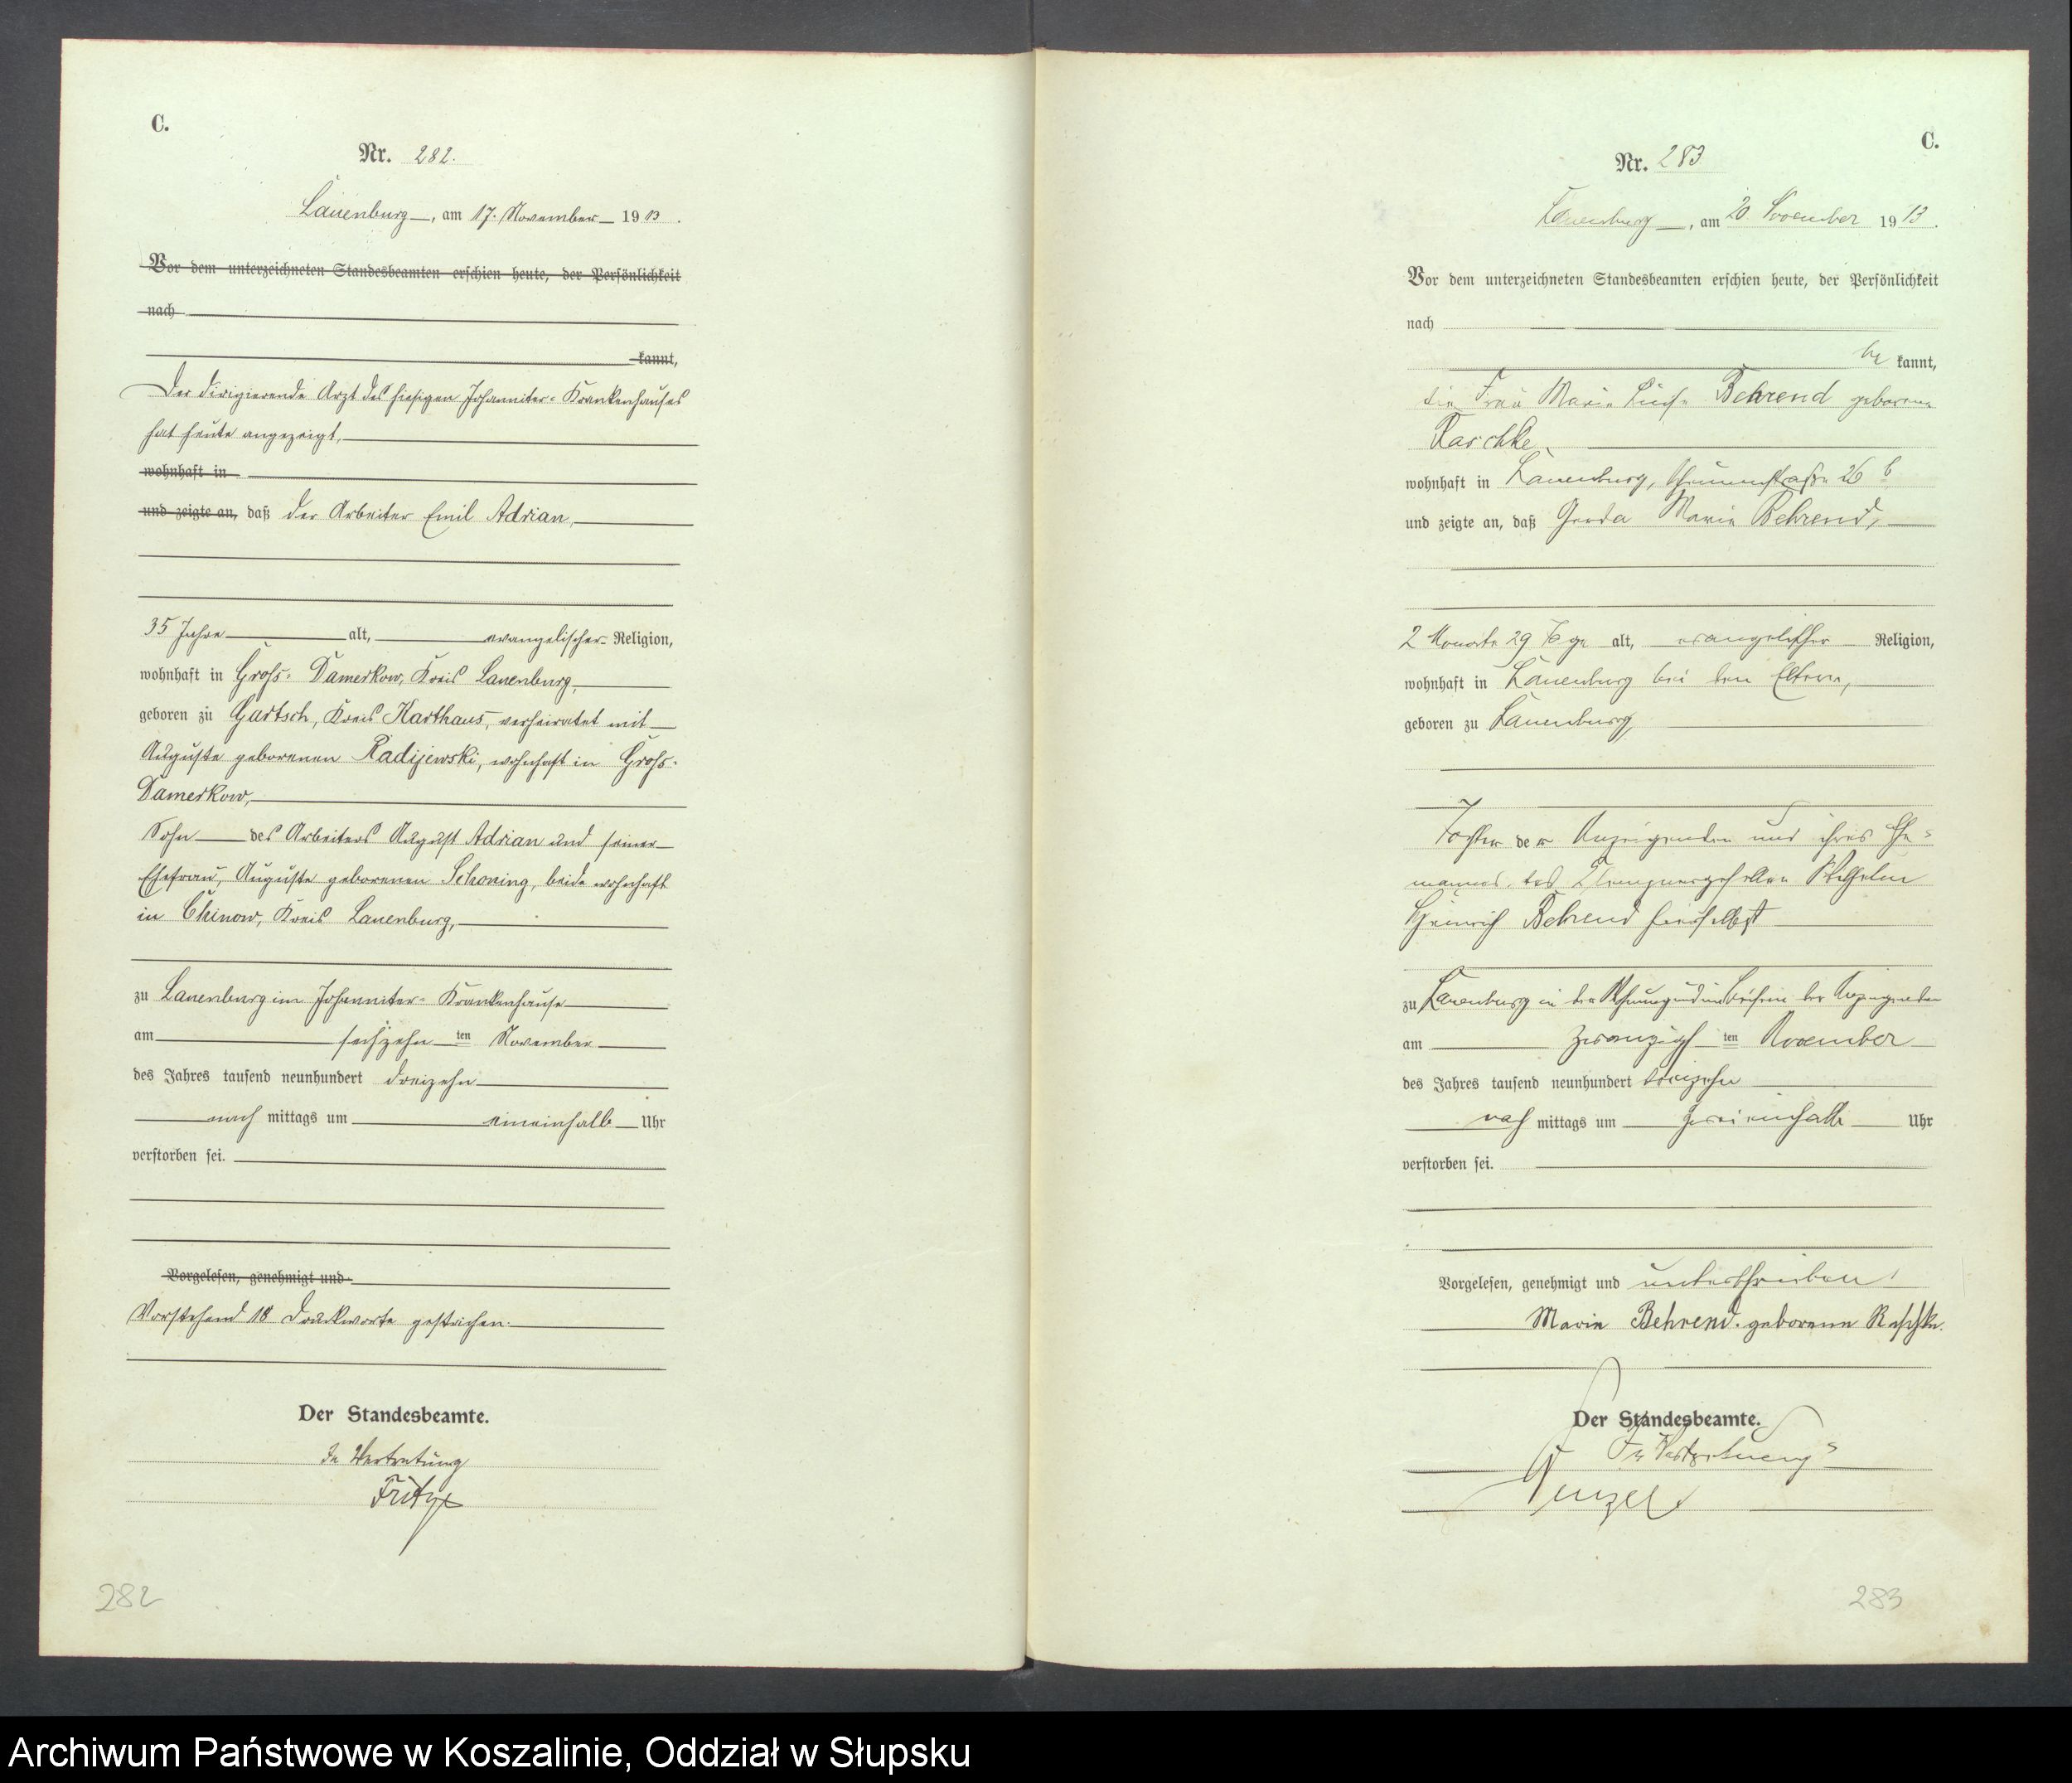 C.
Nr. 282.
Lauenburg, am 17. November 1913.
Vor dem unterzeichneten Standesbeamten erschien heute, der Persönlichkeit
nach
kannt,
Der dirigierende Arzt des hiesigen Johanniter-Krankenhauses
hat heute angezeigt,
wohnhaft in
und zeigte an, daß der Arbeiter Emil Adrian,
35 Jahre alt, evangelischer Religion,
wohnhaft in Groß-Damerkow, Kreis Lauenburg,
geboren zu Gartsch, Kreis Karthaus, verheiratet mit
Auguste geborenen Radijewski, wohnhaft in Groß-
Damerkow,
Sohn des Arbeiters August Adrian und seiner
Ehefrau, Auguste geborenen Schoning, beide wohnhaft
in Chinow, Kreis Lauenburg,
zu Lauenburg im Johanniter-Krankenhause
am sechzehnten November
des Jahres tausend neunhundert dreizehn
nachmittags um eineinhalb Uhr
verstorben sei.
Vorgelesen, genehmigt und
Vorstehend 18 Druckworte gestrichen.
Der Standesbeamte.
In Vertretung
282
C.
Nr. 283
Lauenburg, am 20 November 1913.
Vor dem unterzeichneten Standesbeamten erschien heute, der Persönlichkeit
nach
bekannt,
die Frau Marie Luise Behrend geborene
Raschke
wohnhaft in Lauenburg, 26 b
und zeigte an, daß Gerda Marie Behrend,
2 Monate 29 Tage alt, evangelischer Religion,
wohnhaft in Lauenburg bei den Eltern,
geboren zu Lauenburg,
Tochter der Anzeigenden und ihres Ehe-
mannes, des Klempnergesellen Wilhelm
Heinrich Behrend hierselbst
zu Lauenburg in der Wohnung und im Beisein der Anzeigenden
am zwanzigsten November
des Jahres tausend neunhundert dreizehn
nachmittags um zweieinhalb Uhr
verstorben sei.
Vorgelesen, genehmigt und unterschrieben
Marie Behrend. geborene Raschke.
Der Standesbeamte.
In Vertretung
283
Archiwum Państwowe w Koszalinie, Oddział w Słupsku